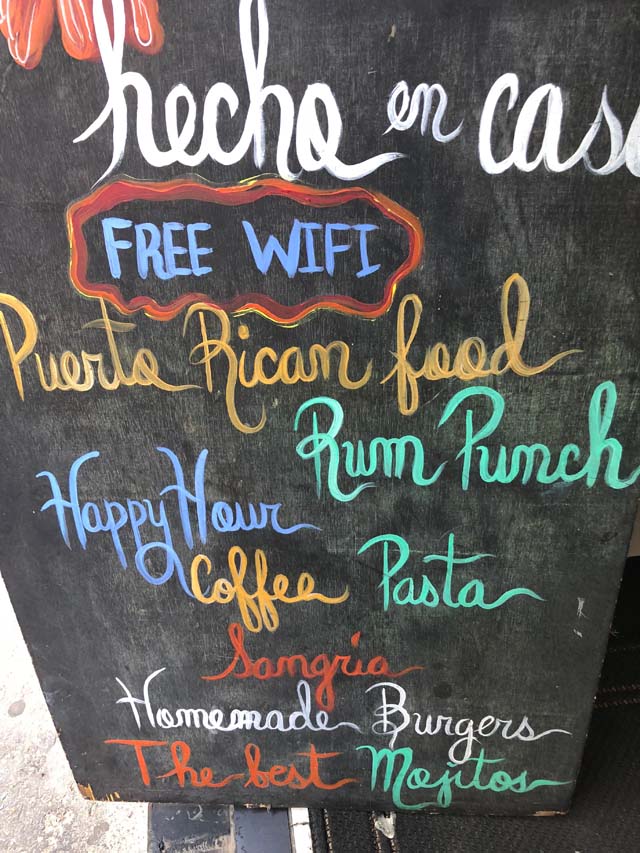 hecho en casa
FREE WIFI
Puerto Rican food
Rum Punch
Happy Hour
Coffee Pasta
Sangria
Homemade Burgers
The best Mojitos